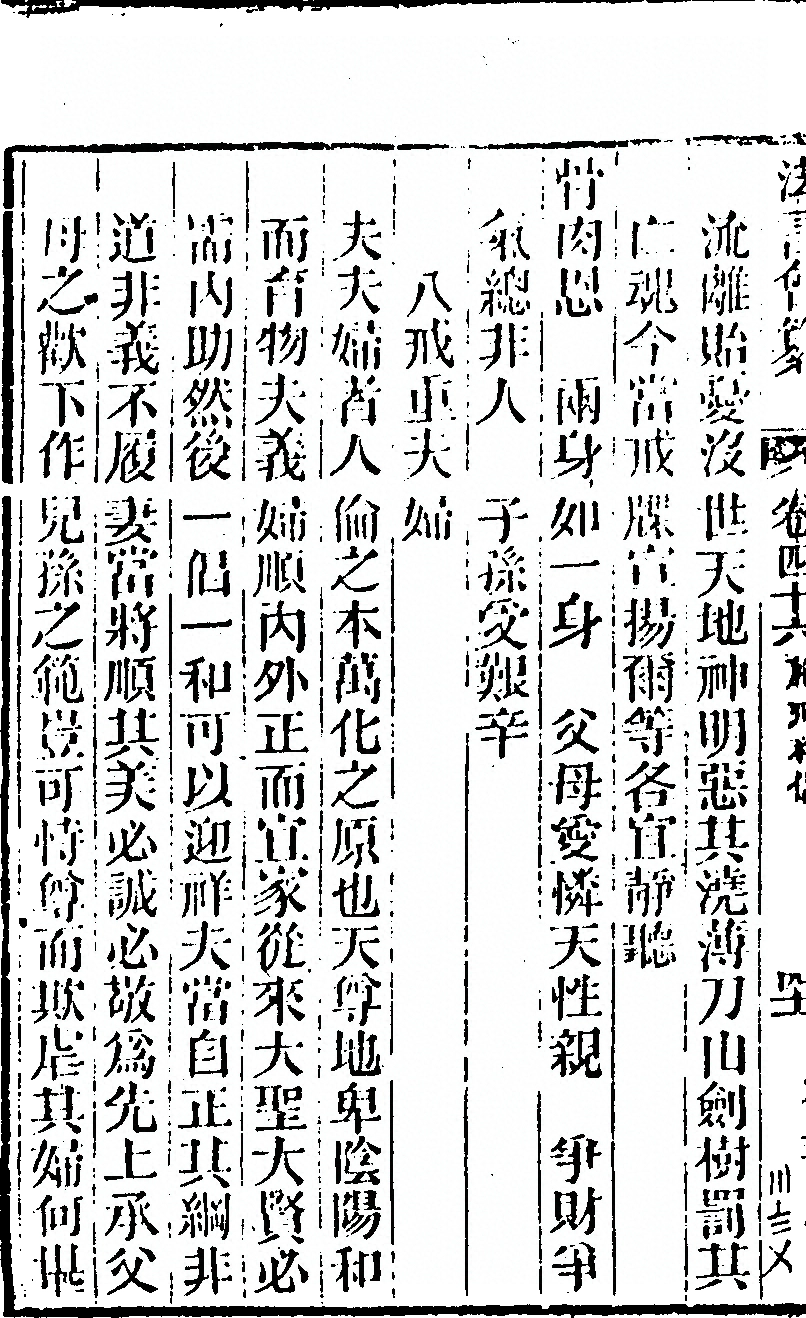 法言會纂 卷四十六
流離貽憂沒世天地神明惡其澆薄刀山劍樹罰其
亡魂今當戒牒宣揚爾等各宜靜聽
骨肉恩　兩身如一身　父母愛憐天性親　爭財爭
氣總非人　子孫受艱辛
八戒重夫婦
夫夫婦者人倫之本萬化之原也天尊地卑陰陽和
而育物夫義婦順內外正而宜家從來大聖大賢必
需內助然後一倡一和可以迎祥夫當自正其綱非
道非義不履妻當將順其美必誠必敬爲先上承父
母之歡下作兒孫之範豈可恃尊而欺虐其婦何堪